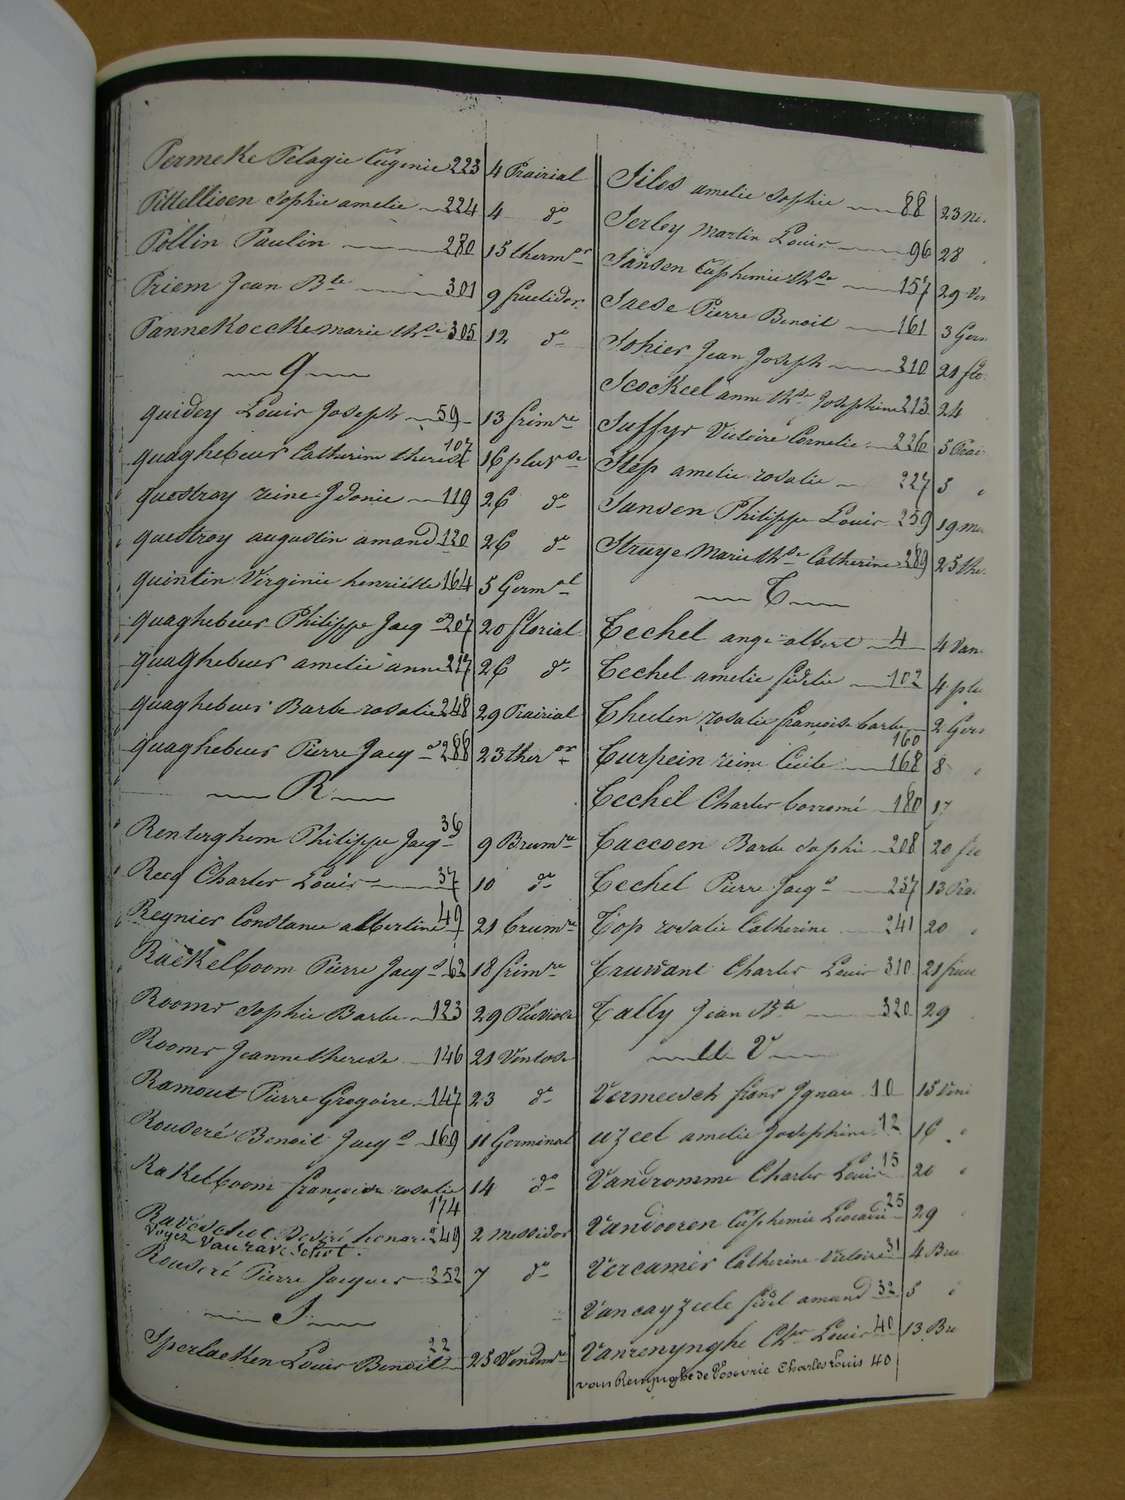 Permeke Pelagie Eugenie 223 4 Prairial
Pittellioen Sophie amelie 224 4 do
Pollin Paulin 280 15 thermor
Priem Jean Bte 301 9 fructidor
Pannekoecke marie thse 305 12 do
Q
quidey Louis Joseph 59 13 frimre
quaghebeur Catherine therese 107 16 pluvse
questroy reine Idonie 119 26 do
questroy augustin amand 120 26 do
quintin Virginie henriette 164 5 Germal
quaghebeur Philippe Jacqs 207 20 florial
quaghebeur amelie anne 217 26 do
quaghebeur Barbe rosalie 248 29 Prairial
quaghebeur Pierre Jacqs 288 23 theror
R
Renterghem Philippe Jacqs 36 9 Brumre
Recq Charles Louis 37 10 do
Regnier Constance albertine 49 21 brumre
Raekelboom Pierre Jacqs 62 18 frimre
Rooms Sophie Barbe 123 29 Pluviose
Rooms Jeanne therese 146 21 Ventose
Ramout Pierre Gregoire 147 23 do
Rouseré Benoit Jacqs 169 11 Germinal
Rakelboom françoise rosalie 174 14 do
Raveschot Desiré 249 2 Messidor
Voyez Vauraveschot
Rouseré Pierre Jacques 252 7 do
S
Sperlaeken Louis Benoit 22 25 Vendmre
Silos amelie Sophie 88 23
Serley Martin Louis 96 28
Sansen Euphemie thse 157 29
Saese Pierre Benoit 161 3 Germ
Sohier Jean Joseph 210 21 flo
Scockeel anne thse Josephine 213 24
Suffys Victoire Cornelie 226 5 Prai
Stop amelie rosalie 227 5
Sansen Philippe Louis 259 19 me
Struye Marie thse Catherine 289 25 the
T
Techel ange albert 4 4 Van
Techel amelie fidelie 102 4 plu
Theten rosalie françoise barbe 160 2 Ger
Turpein reine Cecile 168 8
Techel Charles borromé 180 17
Taccoen Barbe Sophie 208 20 flo
Techel Pierre Jacqs 237 13 Prai
Top rosalie Catherine 241 20
Truwant Charles Louis 310 21
Tally Jean Bte 320 29
U V
Vermeesch frans Ignace 10 15
uzeel amelie Josephine 12 16
Vandromme Charles Louis 15 20
Vandooren Euphemie Leocadie 25 29
Vercamer Catherine victoire 31 4 Bru
Vancayzeele fidel amand 32 5
Vanrenynghe Chs Louis 40 13 Bru
van Renynghe de Voxvrie Charles Louis 40